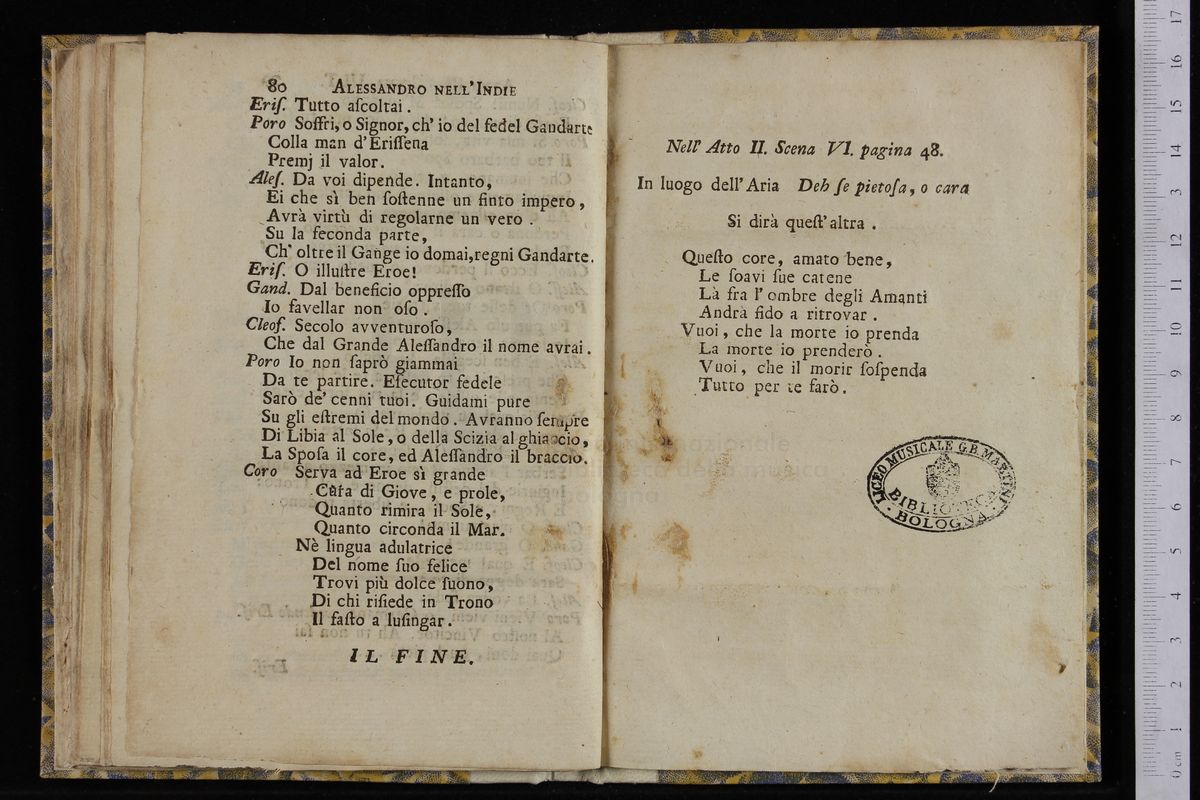 80 ALESSANDRO NELL'INDIE
Eriſ. Tutto aſcoltai.
Poro Soffri, o Signor, ch' io del fedel Gandarte
Colla man d'Eriſſena
Premj il valor.
Aleſ. Da voi dipende. Intanto,
Ei che sì ben ſoſtenne un finto impero,
Avrà virtù di regolarne un vero.
Su la ſeconda parte,
Ch' oltre il Gange io domai, regni Gandarte.
Eriſ. O illuſtre Eroe!
Gand. Dal beneficio oppreſſo
Io favellar non oſo.
Cleof. Secolo avventuroſo,
Che dal Grande Aleſſandro il nome avrai.
Poro Io non ſaprò giammai
Da te partire. Eſecutor fedele
Sarò de' cenni tuoi. Guidami pure
Su gli eſtremi del mondo. Avranno ſempre
Di Libia al Sole, o della Scizia al ghiaccio,
La Spoſa il core, ed Aleſſandro il braccio.
Coro Serva ad Eroe sì grande
Cura di Giove, e prole,
Quanto rimira il Sole,
Quanto circonda il Mar.
Nè lingua adulatrice
Del nome ſuo felice
Trovi più dolce ſuono,
Di chi riſiede in Trono
Il faſto a luſingar.
IL FINE.
Nell' Atto II. Scena VI. pagina 48.
In luogo dell' Aria Deh ſe pietoſa, o cara
Si dirà queſt' altra.
Queſto core, amato bene,
Le ſoavi ſue catene
Là fra l' ombre degli Amanti
Andrà fido a ritrovar.
Vuoi, che la morte io prenda
La morte io prenderò.
Vuoi, che il morir ſoſpenda
Tutto per te farò.
LICEO MUSICALE G.B. MARTINI
BIBLIOTECA
BOLOGNA